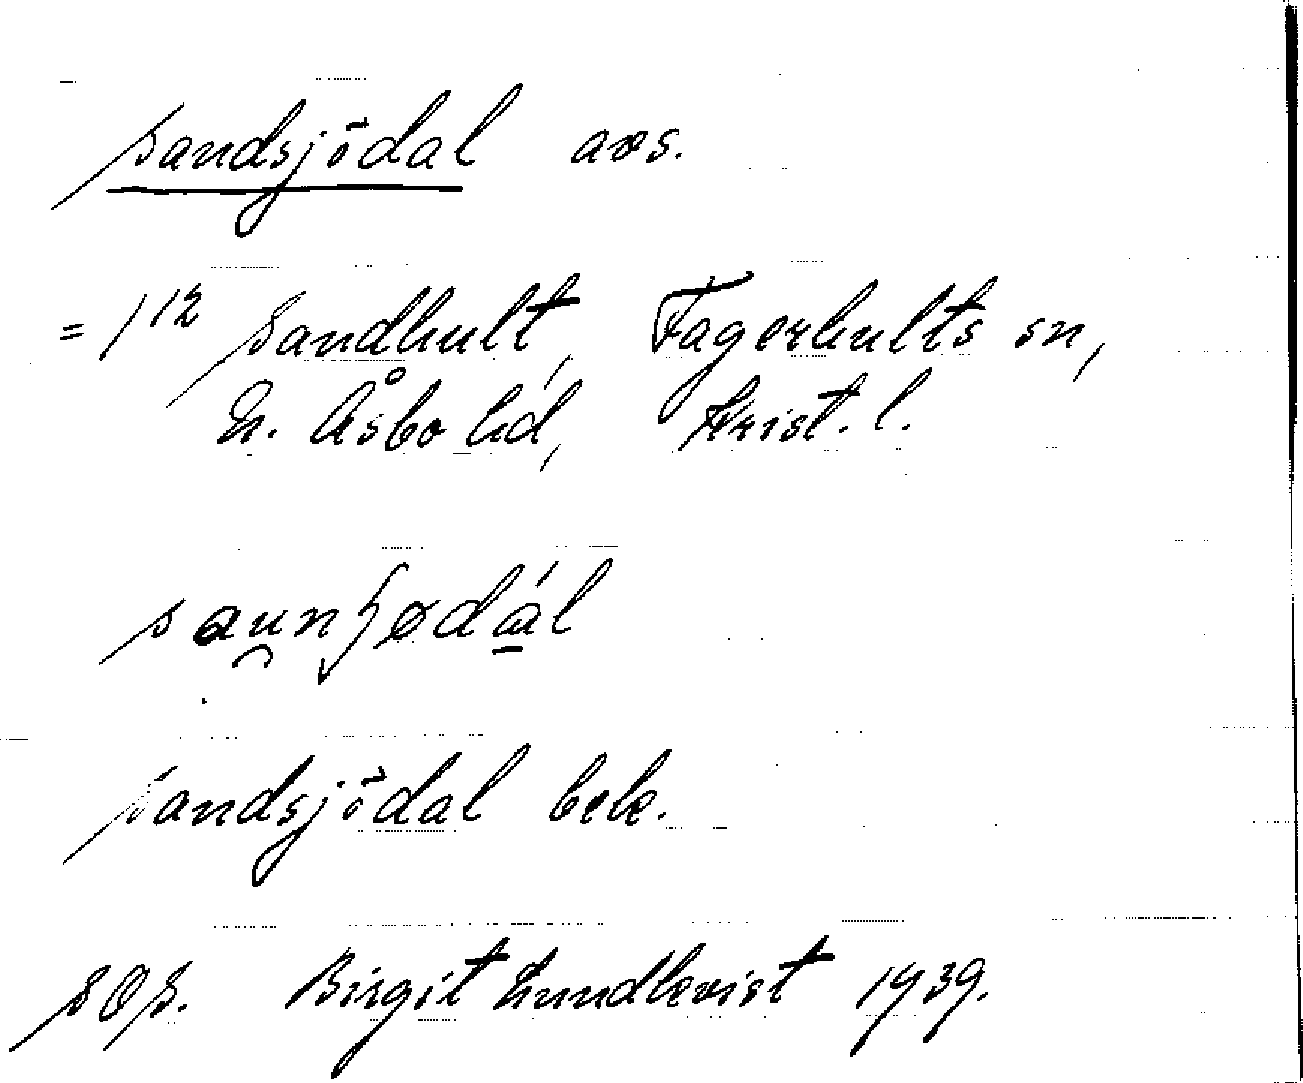 Sandsjödal avs.
= 1¹² Sandhult, Fagerhults sn,
N. Åsbo hd, Krist. l.
Sandsjödal bek.
SOS. Birgit Lundkvist 1939.